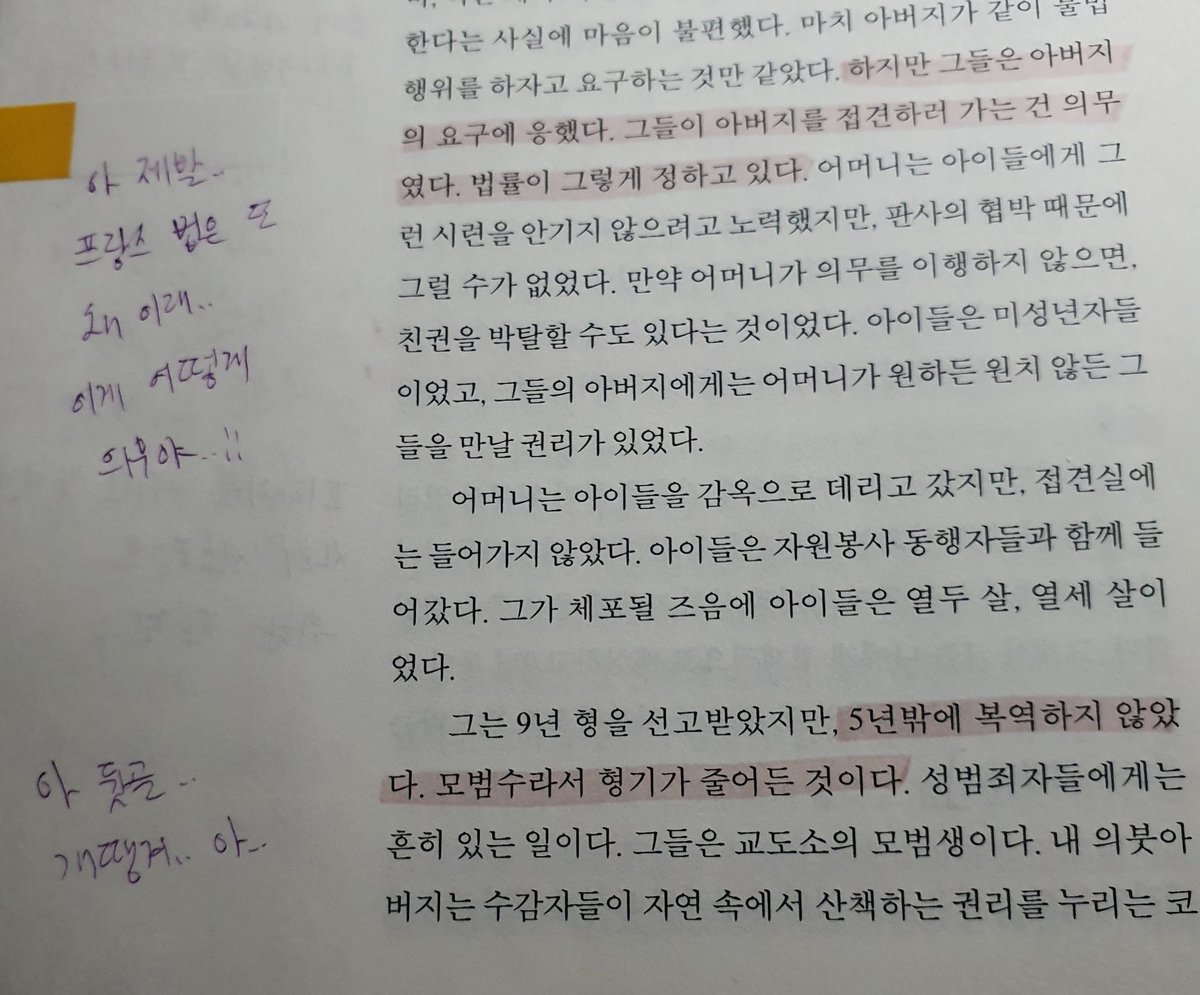 한다는 사실에 마음이 불편했다. 마치 아버지가 같이 불법
행위를 하자고 요구하는 것만 같았다. 하지만 그들은 아버지
의 요구에 응했다. 그들이 아버지를 접견하러 가는 건 의무
였다. 법률이 그렇게 정하고 있다. 어머니는 아이들에게 그
런 시련을 안기지 않으려고 노력했지만, 판사의 협박 때문에
그럴 수가 없었다. 만약 어머니가 의무를 이행하지 않으면,
친권을 박탈할 수도 있다는 것이었다. 아이들은 미성년자들
이었고, 그들의 아버지에게는 어머니가 원하든 원치 않든 그
들을 만날 권리가 있었다.
어머니는 아이들을 감옥으로 데리고 갔지만, 접견실에
는 들어가지 않았다. 아이들은 자원봉사 동행자들과 함께 들
어갔다. 그가 체포될 즈음에 아이들은 열두 살, 열세 살이
었다.
그는 9년 형을 선고받았지만, 5년밖에 복역하지 않았
다. 모범수라서 형기가 줄어든 것이다. 성범죄자들에게는
흔히 있는 일이다. 그들은 교도소의 모범생이다. 내 의붓아
버지는 수감자들이 자연 속에서 산책하는 권리를 누리는 코
아 제발..
프랑스 법은 또
왜 이래..
이게 어떻게
의무야..!!
아 뒷골..
개땡겨.. 아..